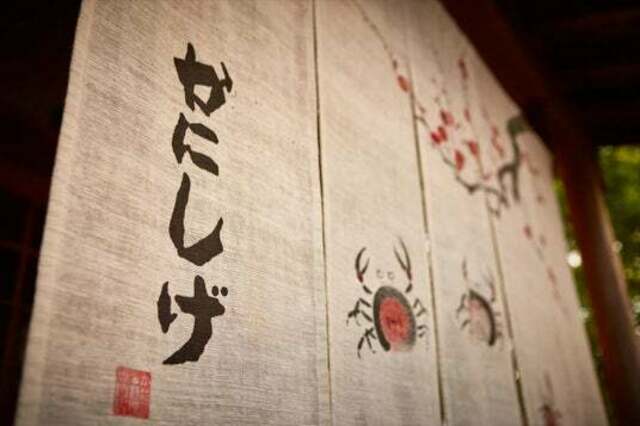 かにしげ